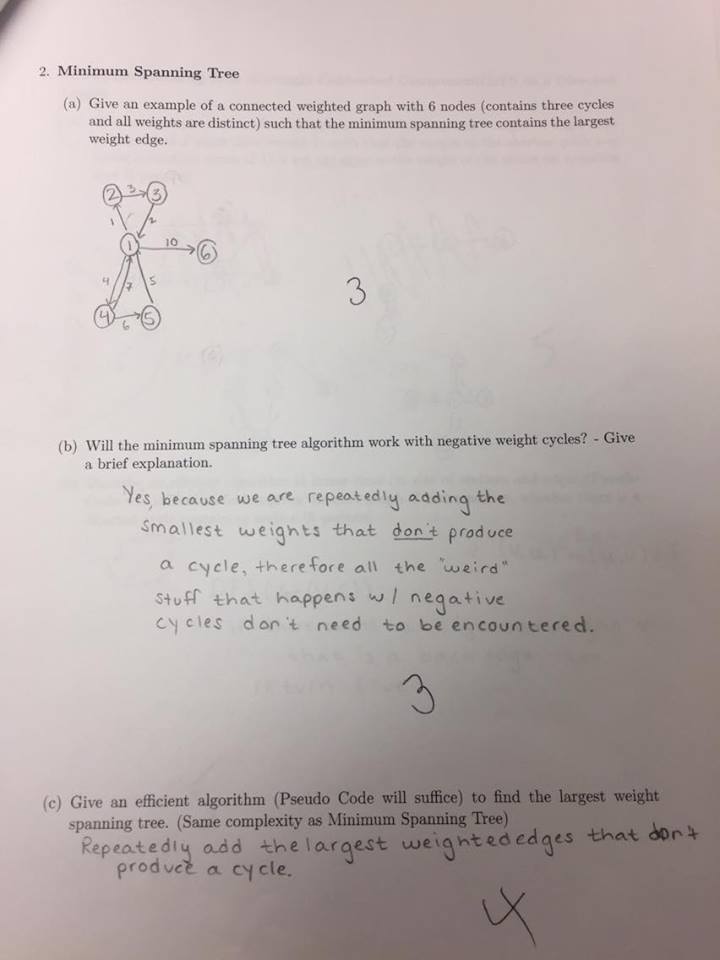 2. Minimum Spanning Tree
(a) Give an example of a connected weighted graph with 6 nodes (contains three cycles
and all weights are distinct) such that the minimum spanning tree contains the largest
weight edge.
2 3 3
1 2
1 10 6
4 7 5
4 6 5
3
(b) Will the minimum spanning tree algorithm work with negative weight cycles? - Give
a brief explanation.
Yes, because we are repeatedly adding the
smallest weights that don't produce
a cycle, therefore all the "weird"
stuff that happens w/ negative
cycles don't need to be encountered.
3
(c) Give an efficient algorithm (Pseudo Code will suffice) to find the largest weight
spanning tree. (Same complexity as Minimum Spanning Tree)
Repeatedly add the largest weighted edges that don't
produce a cycle.
4